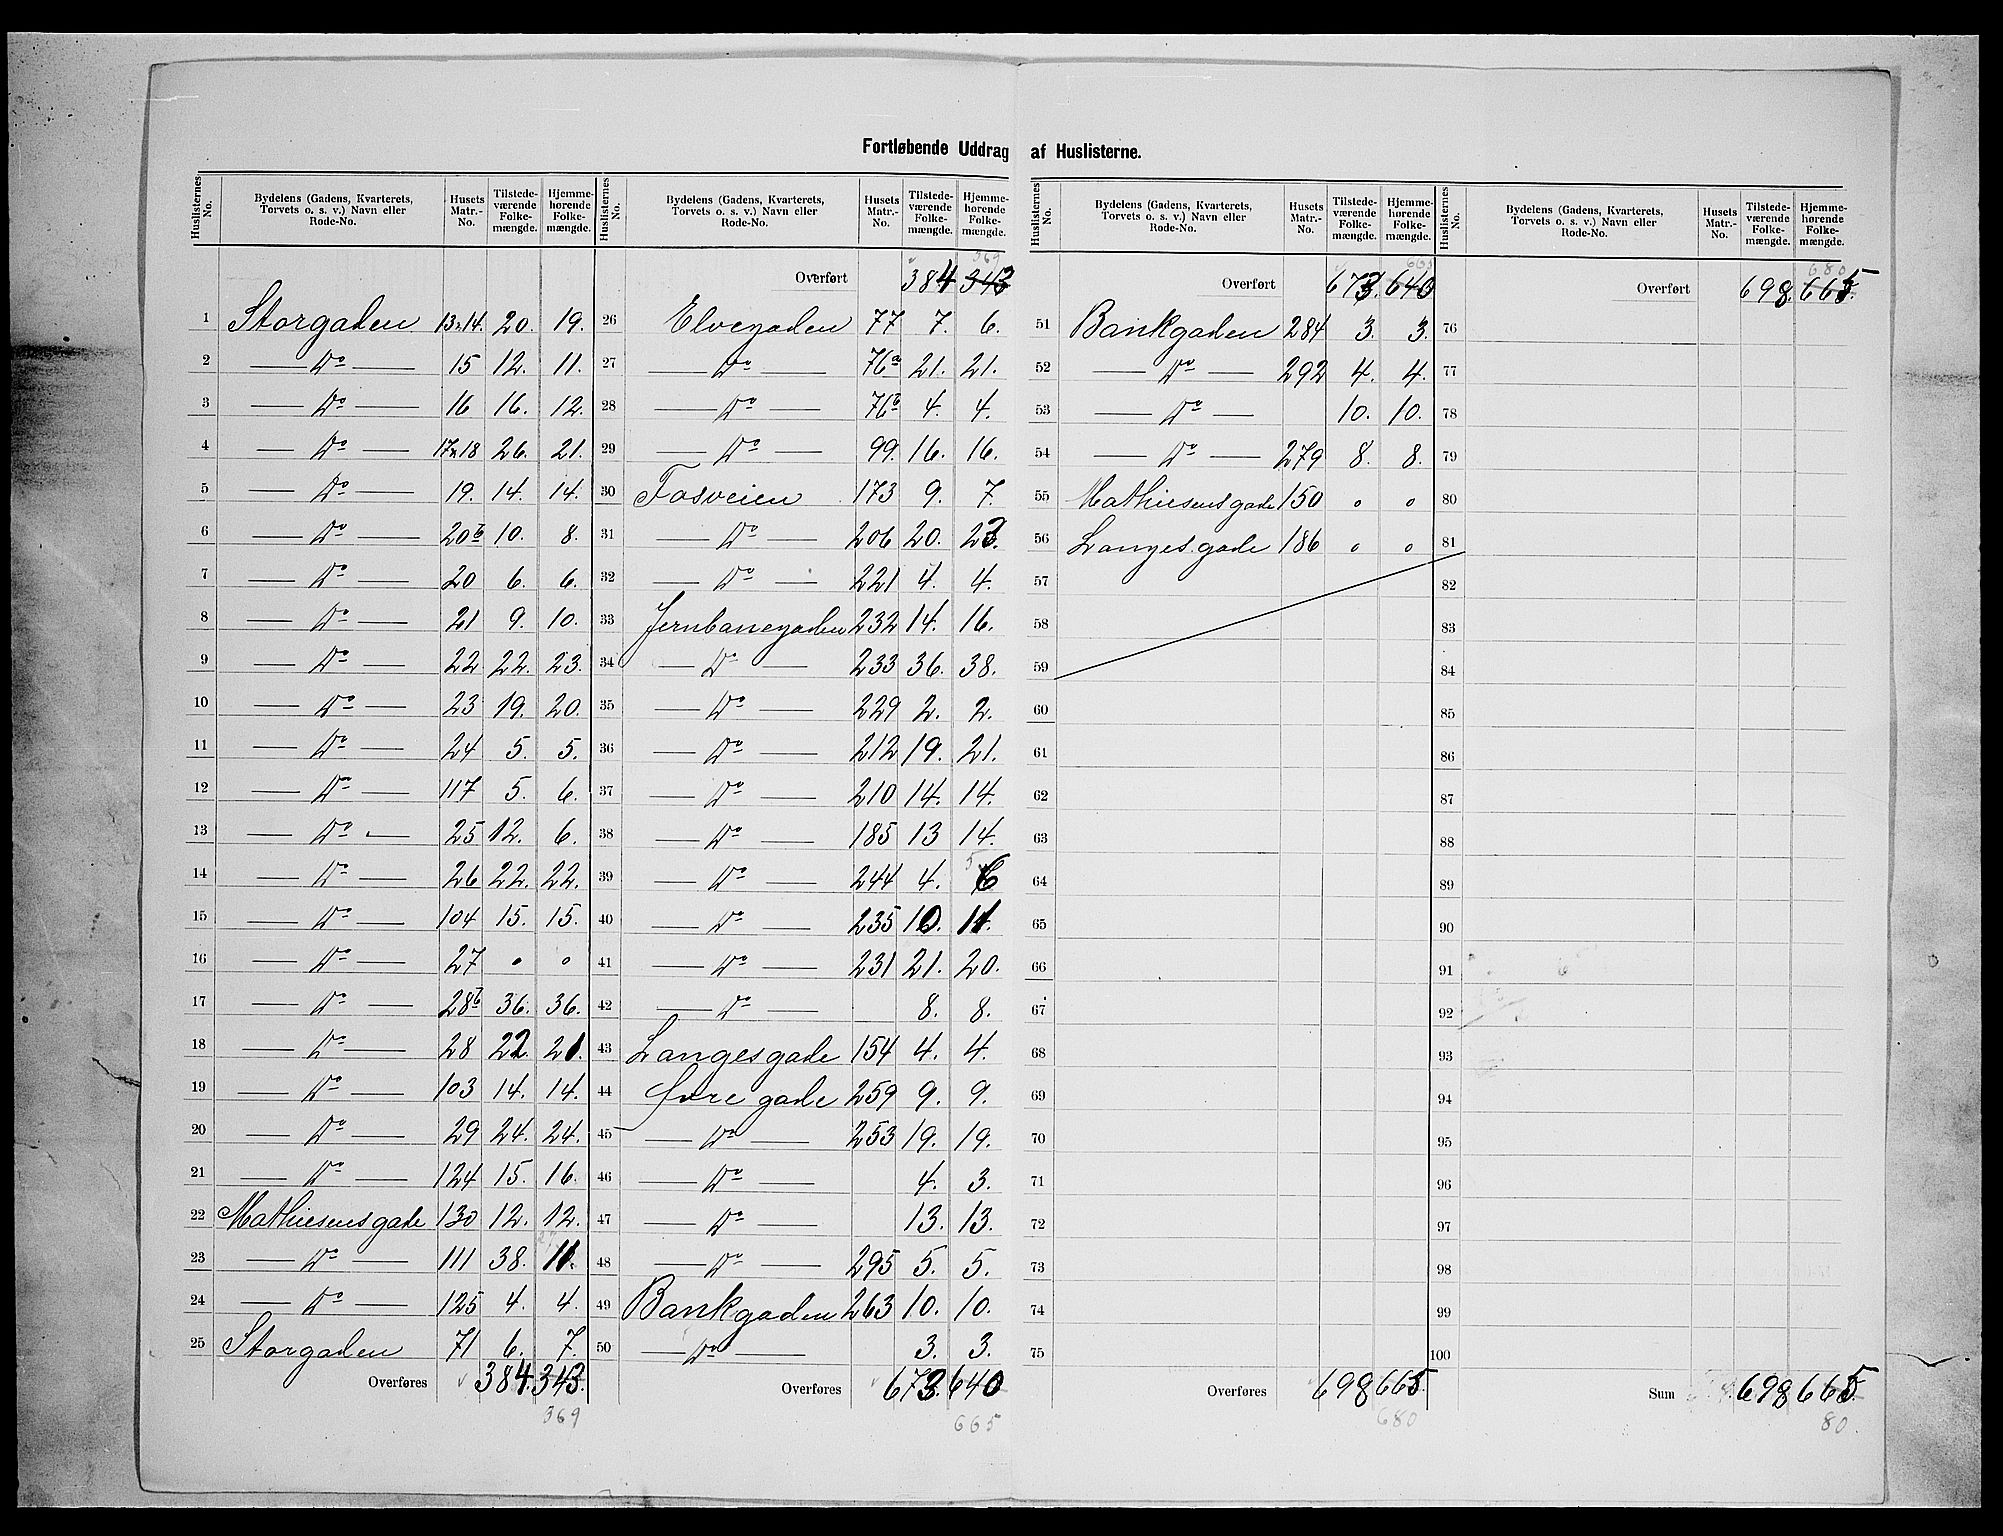 Fortløbende Uddrag af Huslisterne.
Huslisternes No. | Bydelens (Gadens, Kvarterets, Torvets o. s. v.) Navn eller Rode-No. | Husets Matr.-No. | Tilstede-værende Folke-mængde. | Hjemme-hørende Folke-mængde.
1 Storgaden 13&14. 20. 19.
2 — Do — 15 12. 11.
3 — Do — 16 16. 12.
4 — Do — 17&18 26. 21.
5 — Do — 19. 14. 14.
6 — Do — 20b 10. 8.
7 — Do — 20 6. 6.
8 — Do — 21 9. 10.
9 — Do — 22 22. 23.
10 — Do — 23 19. 20.
11 — Do — 24 5. 5.
12 — Do — 117 5. 6.
13 — Do — 25 12. 6.
14 — Do — 26 22. 22.
15 — Do — 104 15. 15.
16 — Do — 27 " "
17 — Do — 28b 36. 36.
18 — Do — 28 22. 21.
19 — Do — 103 14. 14.
20 — Do — 29 24. 24.
21 — Do — 124 15. 16.
22 Mathiesensgade 130 12. 12.
23 — Do — 111 38. 11.
24 — Do — 125 4. 4.
25 Storgaden 71 6. 7.
Overføres 384. 343.
369
Huslisternes No. | Bydelens (Gadens, Kvarterets, Torvets o. s. v.) Navn eller Rode-No. | Husets Matr.-No. | Tilstede-værende Folke-mængde. | Hjemme-hørende Folke-mængde.
369
Overført 384 343
26 Elvegaden 77 7. 6.
27 — Do — 76a 21. 21.
28 — Do — 76b 4. 4.
29 — Do — 99. 16. 16.
30 Fosveien 173 9. 7.
31 — Do — 206 20. 23.
32 — Do — 221 4. 4.
33 Jernbanegaden 232 14. 16.
34 — Do — 233 36. 38.
35 — Do — 229 2. 2.
36 — Do — 212 19. 21.
37 — Do — 210 14. 14.
38 — Do — 185 13 14.
39 — Do — 244 4. 5 6
40 — Do — 235 10. 11.
41 — Do — 231 21. 20.
42 — Do — 8. 8.
43 Langesgade 154 4. 4.
44 Øvre gade 259 9. 9.
45 — Do — 253 19. 19.
46 — Do — 4. 3.
47 — Do — 13. 13.
48 — Do — 295 5. 5.
49 Bankgaden 263 10. 10.
50 — Do — 3. 3.
Overføres 673. 640
665
Huslisternes No. | Bydelens (Gadens, Kvarterets, Torvets o. s. v.) Navn eller Rode-No. | Husets Matr.-No. | Tilstede-værende Folke-mængde. | Hjemme-hørende Folke-mængde.
665
Overført 673. 640
51 Bankgaden 284 3. 3.
52 — Do — 292 4. 4.
53 — Do — 10. 10.
54 — Do — 279 8. 8.
55 Mathiesensgade 150 " "
56 Langes gade 186 " "
57
58
59
60
61
62
63
64
65
66
67
68
69
70
71
72
73
74
75
Overføres 698 665.
680
Huslisternes No. | Bydelens (Gadens, Kvarterets, Torvets o. s. v.) Navn eller Rode-No. | Husets Matr.-No. | Tilstede-værende Folke-mængde. | Hjemme-hørende Folke-mængde.
680
Overført 698. 665.
76
77
78
79
80
81
82
83
84
85
86
87
88
89
90
91
92
93
94
95
96
97
98
99
100
Sum 698 665.
80.